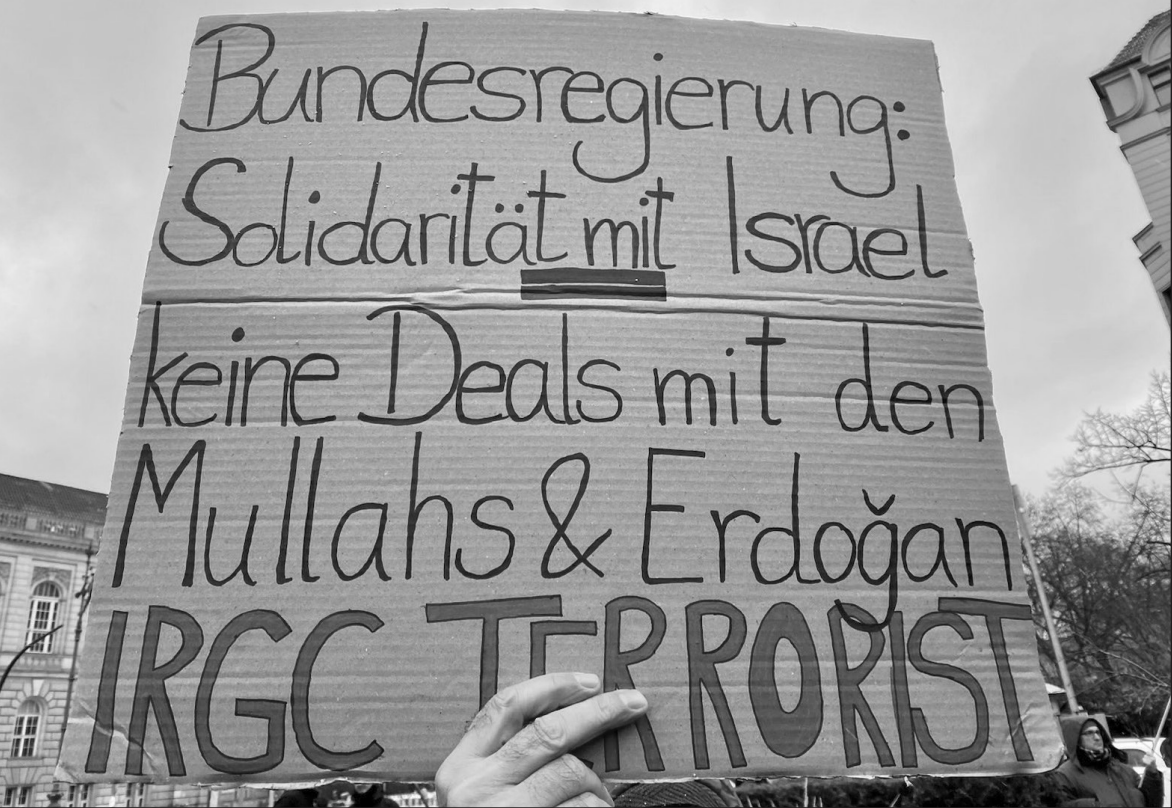 Bundesregierung:
Solidarität mit Israel
keine Deals mit den
Mullahs & Erdoğan
IRGC TERRORIST